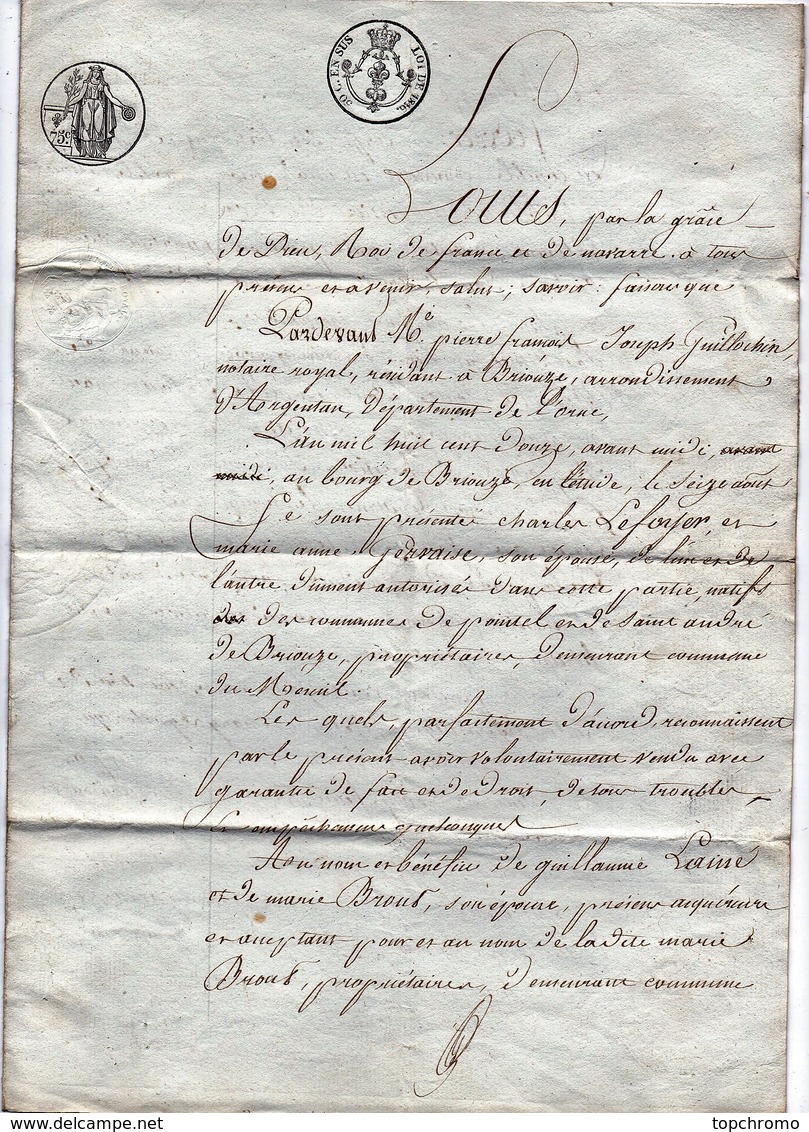 50 C. EN SUS LOI DE 1816.
75c
Louis, par la grâce
de Dieu, Roi de france et de navarre. à tous
présens et à venir, salut; savoir: faisons que
Pardevant Me. pierre francois Joseph Guillochin,
notaire royal, résidant à Briouze, arrondissement
d'Argentan, Département de L'orne,
L'an mil huit cent douze, avant midi, avant
midi, au bourg de Briouze, en l'étude, le seize août
Se sont présenté charles Leforjer et
marie anne Gervaise, son épouse, de lui et de
l'autre dûment autorisés dans cette partie, natifs
des des communes de pointel et de saint andré
de Briouze, propriétaires, demeurant commune
du Menil.
Les quels, parfaitement d'acord, reconnaissent
par le présent avoir volontairement vendu avec
garantie de fait et de droit, de tous troubles
et empêchemens quelconques
Au nom et bénéfice de guillaume Lainé
et de marie Brout, son épouse, présens acquéreurs
et acceptant pour et au nom de la dite marie
Brout, propriétaires, demeurant commune
topchromo